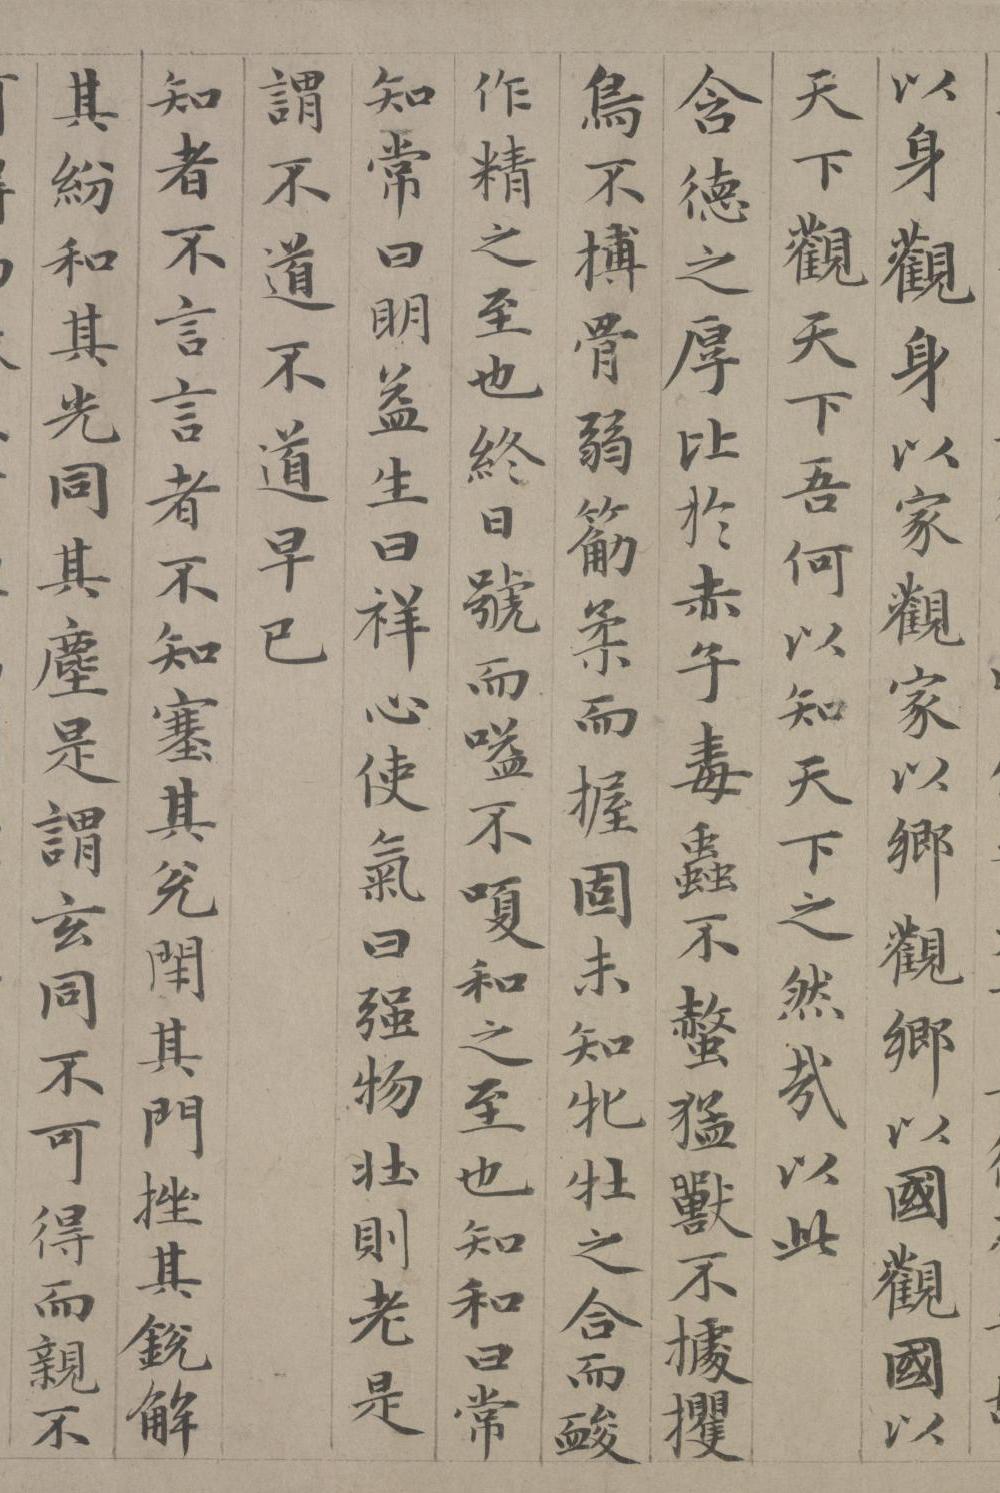 以身觀身以家觀家以鄉觀鄉以國觀國以
天下觀天下吾何以知天下之然㢤以此
含德之厚比於赤子毒蟲不螫猛獸不據攫
鳥不搏骨弱筋柔而握固未知牝牡之合而酸
作精之至也終日號而嗌不嗄和之至也知和曰常
知常曰明益生曰祥心使氣曰强物壮則老是
謂不道不道早已
知者不言言者不知塞其兌閉其門挫其銳解
其紛和其光同其塵是謂玄同不可得而親不